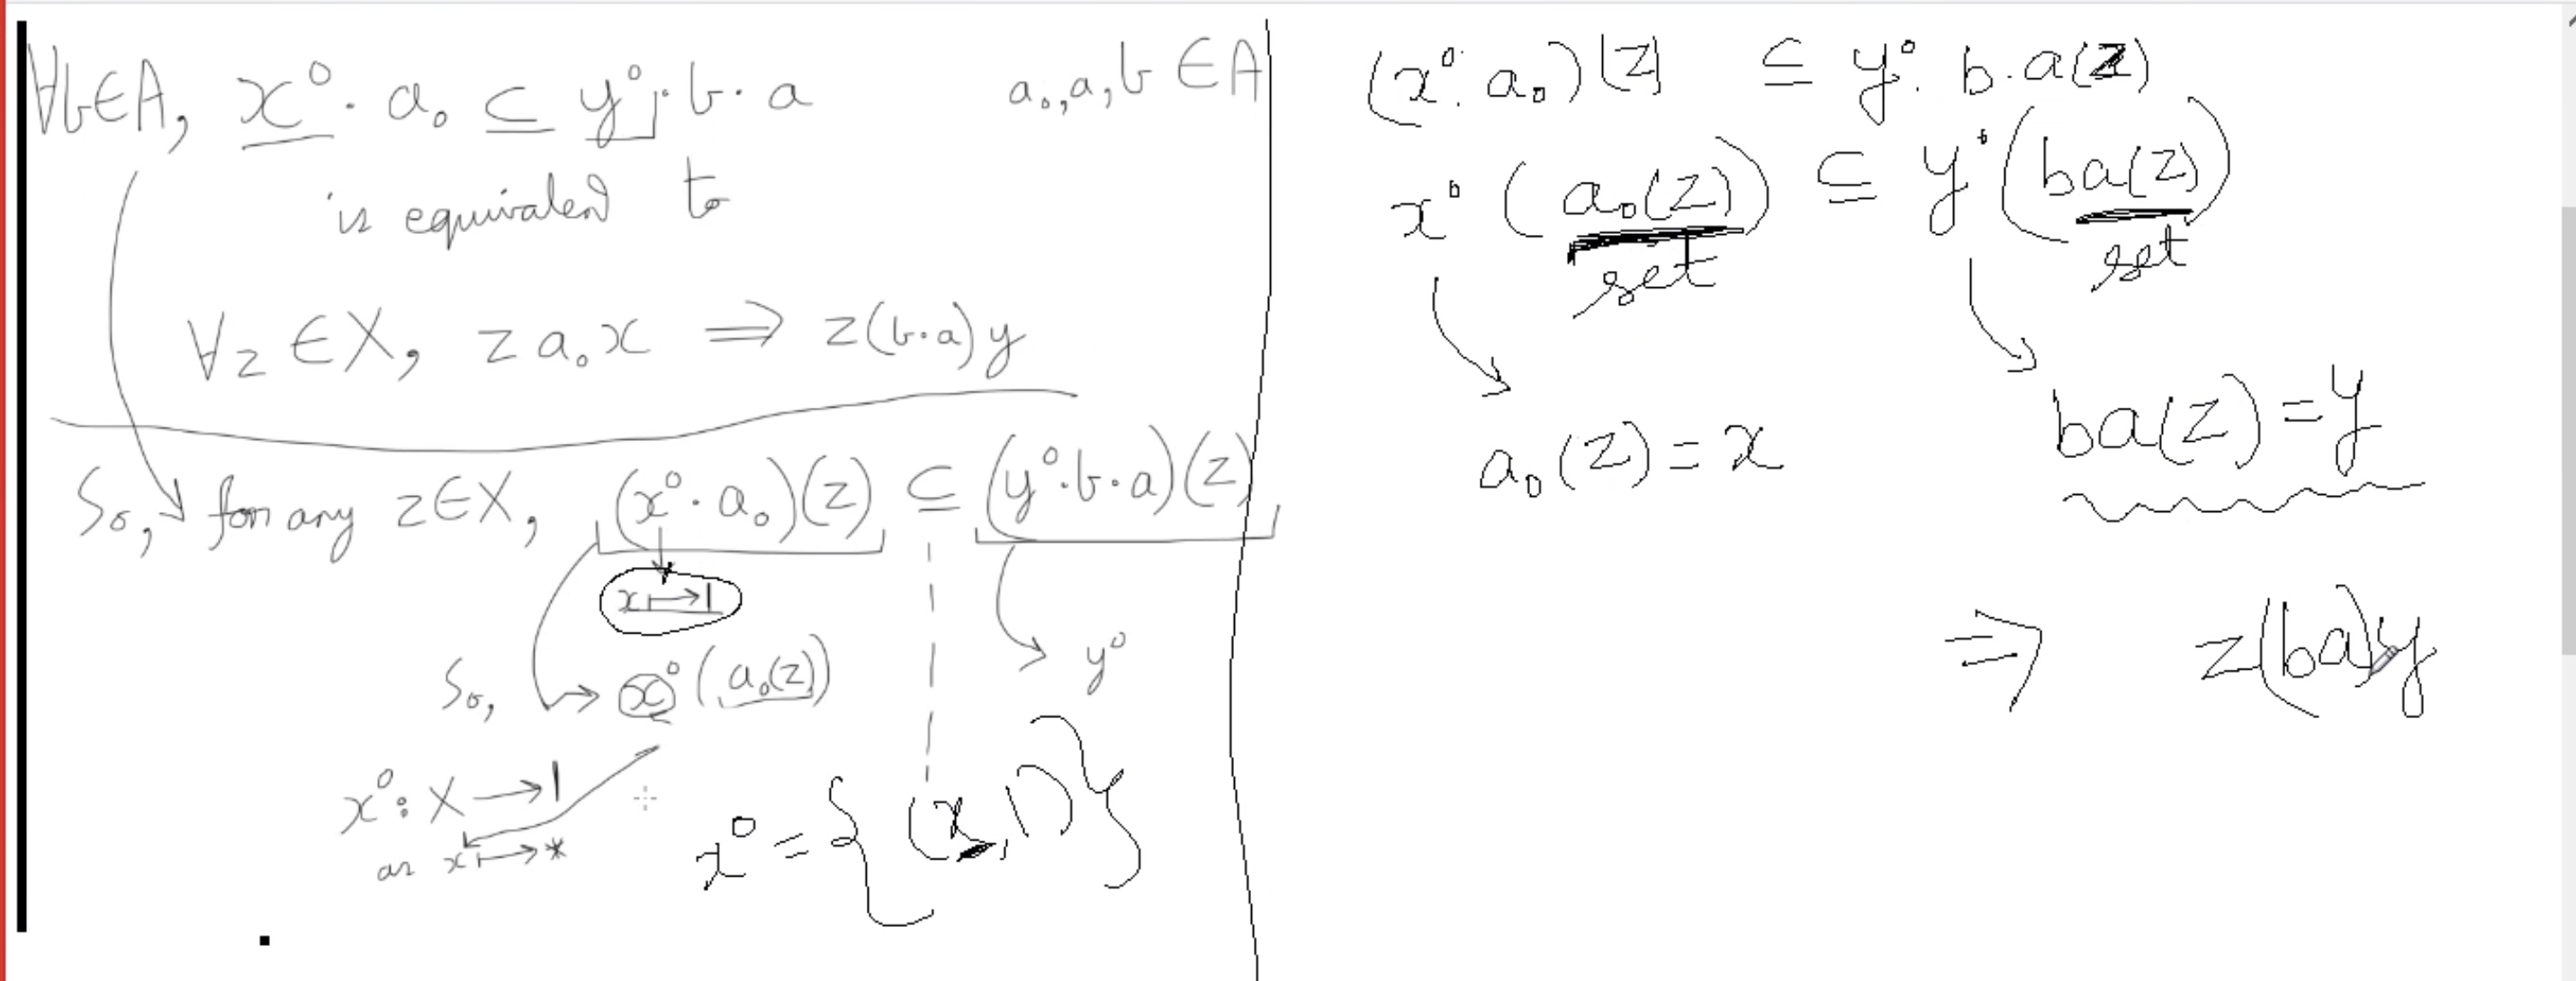 ∀b∈A, x°·a₀ ⊆ y°·b·a    a₀,a,b ∈A
is equivalent to
∀z ∈X, z a₀x ⟹ z(b·a)y
So, for any z∈X, (x°·a₀)(z) ⊆ (y°·b·a)(z)
x↦1
So, → x°(a₀(z))    y°
x°: X→1
as x↦*
x° = {(x,1)}
(x°·a₀)(z) ⊆ y°·b·a(z)
x°(a₀(z)) ⊆ y°(ba(z))
set    set
a₀(z)=x    ba(z)=y
⇒ z(ba)y